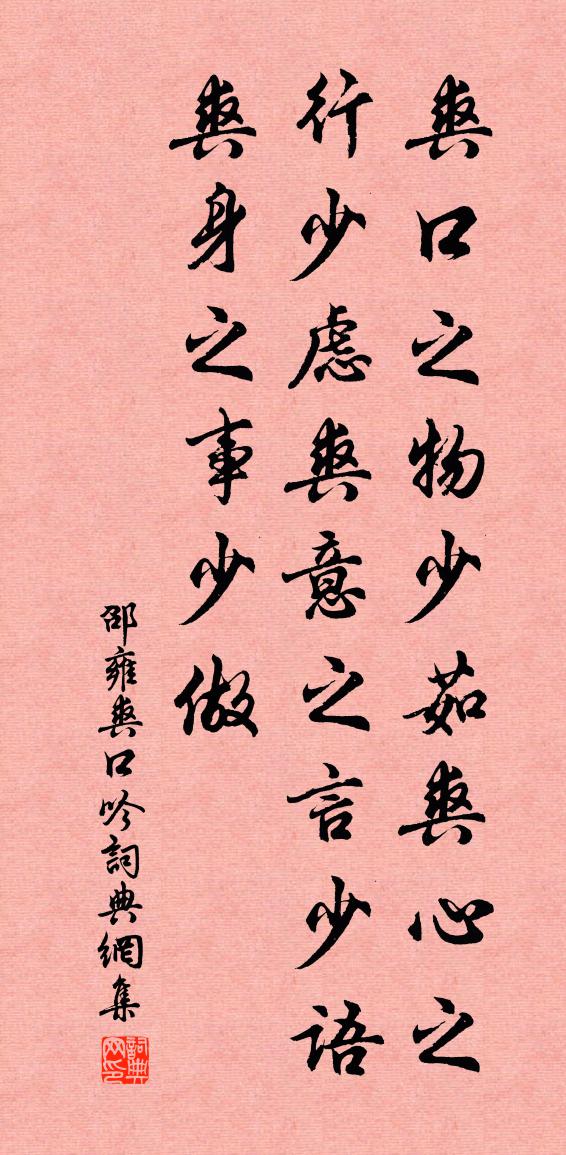 爽口之物少茹爽心之
行少慮爽意之言少語
爽身之事少做
邵雍爽口吟詞典網集
詞典
网印